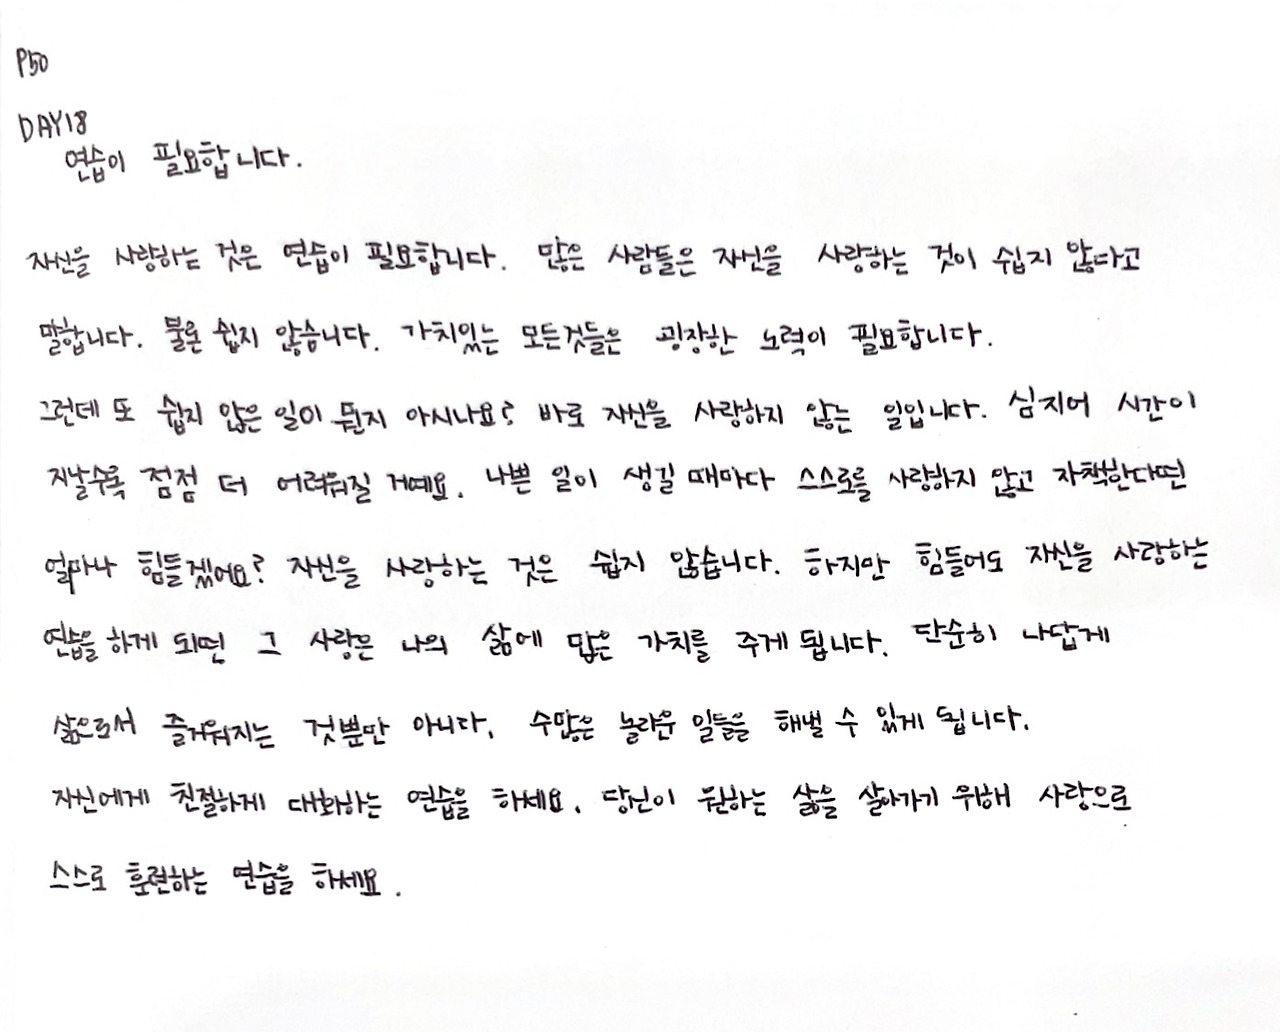 P50
DAY18
연습이 필요합니다.
자신을 사랑하는 것은 연습이 필요합니다. 많은 사람들은 자신을 사랑하는 것이 쉽지 않다고
말합니다. 물론 쉽지 않습니다. 가치있는 모든것들은 굉장한 노력이 필요합니다.
그런데 또 쉽지 않은 일이 뭔지 아시나요? 바로 자신을 사랑하지 않는 일입니다. 심지어 시간이
지날수록 점점 더 어려워질 거예요. 나쁜 일이 생길 때마다 스스로를 사랑하지 않고 자책한다면
얼마나 힘들겠어요? 자신을 사랑하는 것은 쉽지 않습니다. 하지만 힘들어도 자신을 사랑하는
연습을 하게 되면 그 사랑은 나의 삶에 많은 가치를 주게 됩니다. 단순히 나답게
삶으로서 즐거워지는 것뿐만 아니라, 수많은 놀라운 일들을 해낼 수 있게 됩니다.
자신에게 친절하게 대화하는 연습을 하세요. 당신이 원하는 삶을 살아가기 위해 사랑으로
스스로 훈련하는 연습을 하세요.